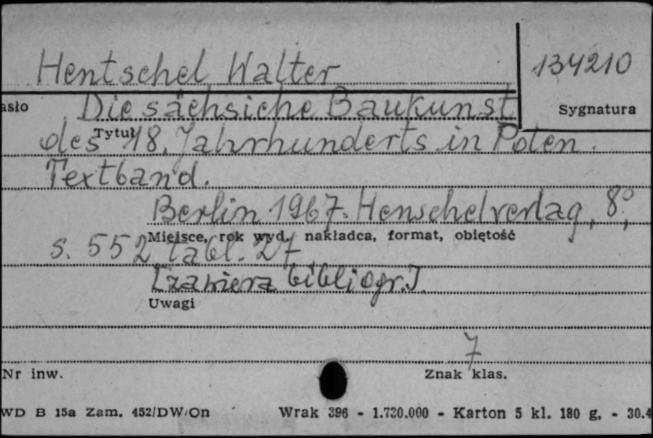 Hentschel Walter
134210
asło
Sygnatura
Die sächsiche Baukunst
Tytuł
des 18. Jahrhunderts in Polen.
Textband.
Berlin 1967. Henschelverlag, 8°,
Miejsce, rok wyd., nakładca, format, objętość
s. 552 tabl. 27
[zawiera bibliogr.]
Uwagi
7
Nr inw.
Znak klas.
WD B 15a Zam. 452/DW/On Wrak 396 - 1.720.000 - Karton 5 kl. 180 g. - 30.4